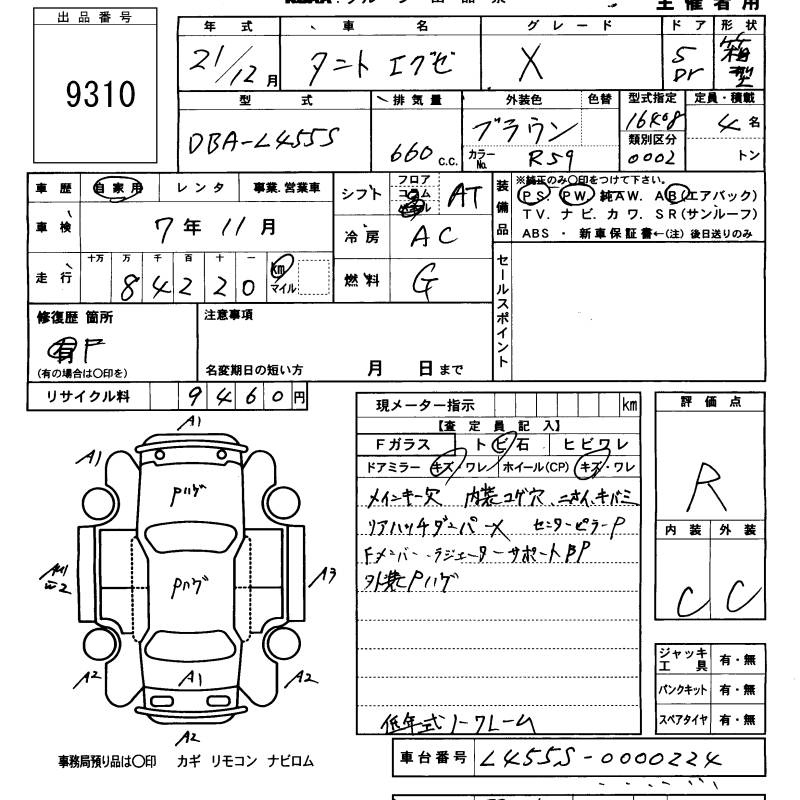 主催者用
出品番号
9310
年式 車名 グレード ドア 形状
21/12月 タント エグゼ X 5Dr 箱型
型式 排気量 外装色 色替 型式指定 定員・積載
DBA-L455S 660 c.c. ブラウン 16408 4名
カラーNo. R59 類別区分 0002 トン
車歴 自家用 レンタ 事業.営業車
車検 7年11月
走行 十万 万 千 百 十 一
84220 km マイル
シフト フロア コラム AT
冷房 AC
燃料 G
装備品 ※純正のみ〇印をつけて下さい。
PS. PW. 純AW. AB(エアバック)
TV. ナビ. カワ. SR(サンルーフ)
ABS ・ 新車保証書←(注) 後日送りのみ
セールスポイント
修復歴 箇所
有 F
(有の場合は〇印を)
注意事項
名変期日の短い方 月 日まで
リサイクル料 9460円
現メーター指示 km
【査定員記入】
Fガラス トビ石 ヒビワレ
ドアミラー キズ・ワレ ホイール(CP) キズ・ワレ
メインキー欠 内装コゲ穴、こさん、キバミ
リアハッチダンパー× センターピラーP
Fメンバー・ラジエーターサポートBP
外装Pハゲ
低年式ノークレーム
評価点
R
内装 外装
C C
A1
A1
Pハゲ
Pハゲ
A3
A2
A1
A2
A2
ジャッキ工具 有・無
パンクキット 有・無
スペアタイヤ 有・無
事務局預り品は〇印 カギ リモコン ナビロム
車台番号 L455S-0000224